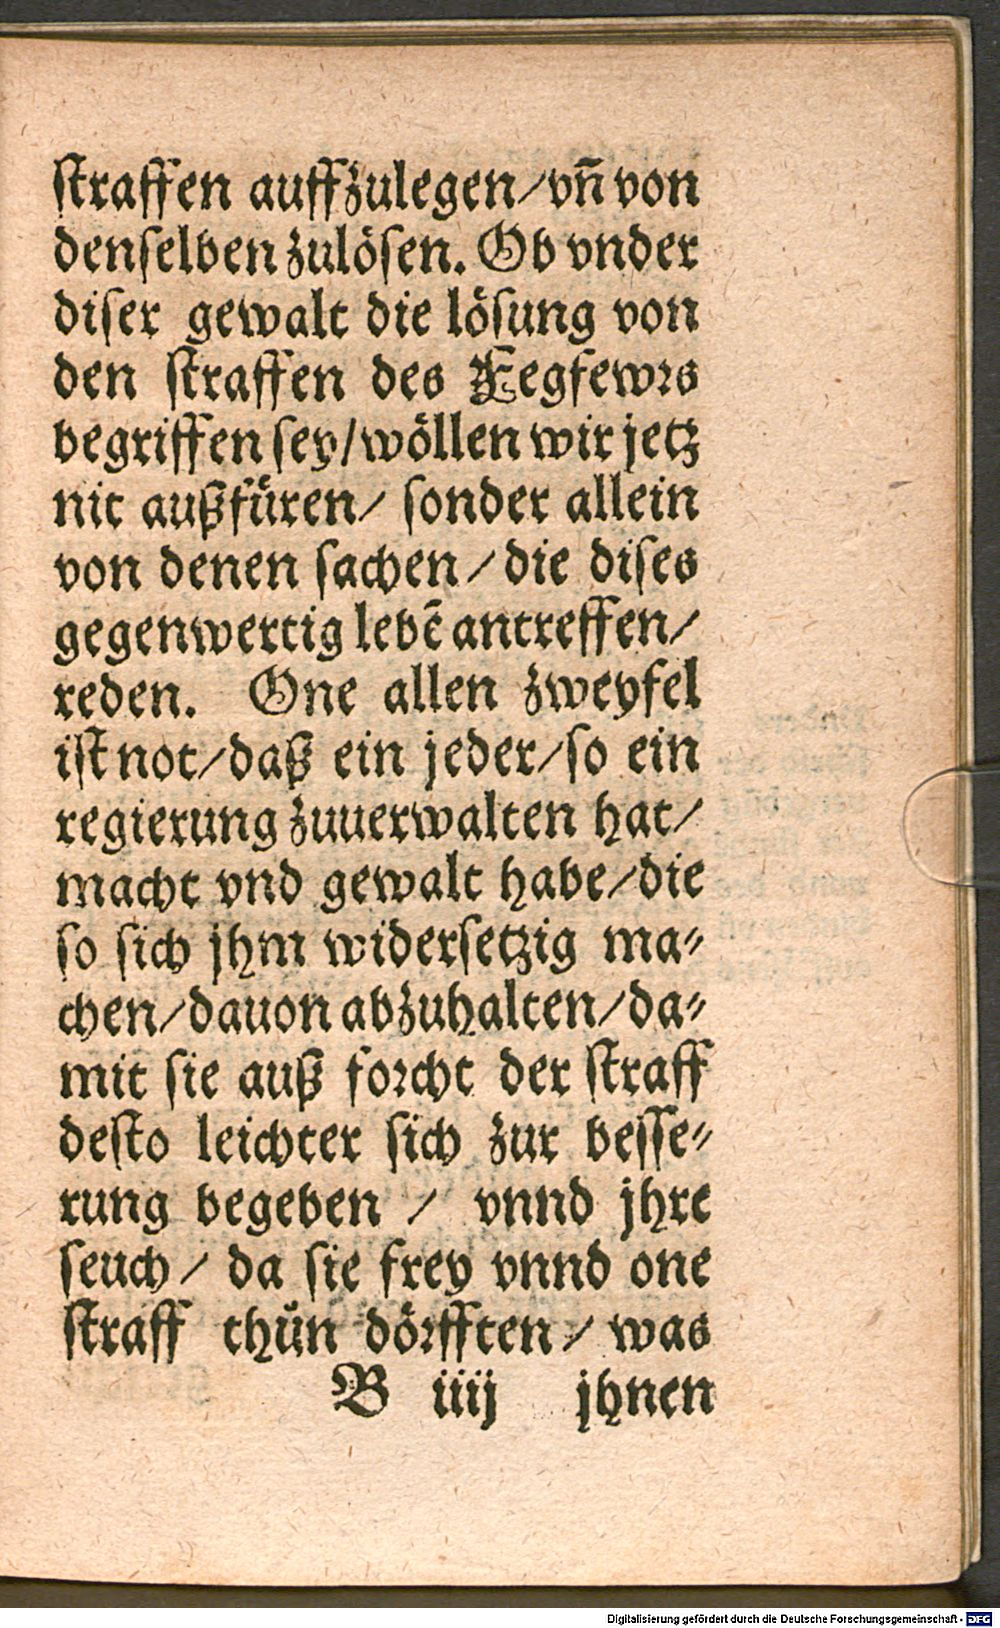 straffen auffzulegen/vñ von
denselben zulösen. Ob vnder
diser gewalt die lösung von
den straffen des Fegfewrs
begriffen sey/wöllen wir jetz
nit außfüren/ sonder allein
von denen sachen/die dises
gegenwertig lebē antreffen/
reden. One allen zweyfel
ist not/daß ein jeder/so ein
regierung zuuerwalten hat/
macht vnd gewalt habe/die
so sich jhm widersetzig ma⸗
chen/dauon abzuhalten/da⸗
mit sie auß forcht der straff
desto leichter sich zur besse⸗
rung begeben / vnnd jhre
seuch/ da sie frey vnnd one
straff thůn dörfften/ was
B iiij jhnen
Digitalisierung gefördert durch die Deutsche Forschungsgemeinschaft - DFG